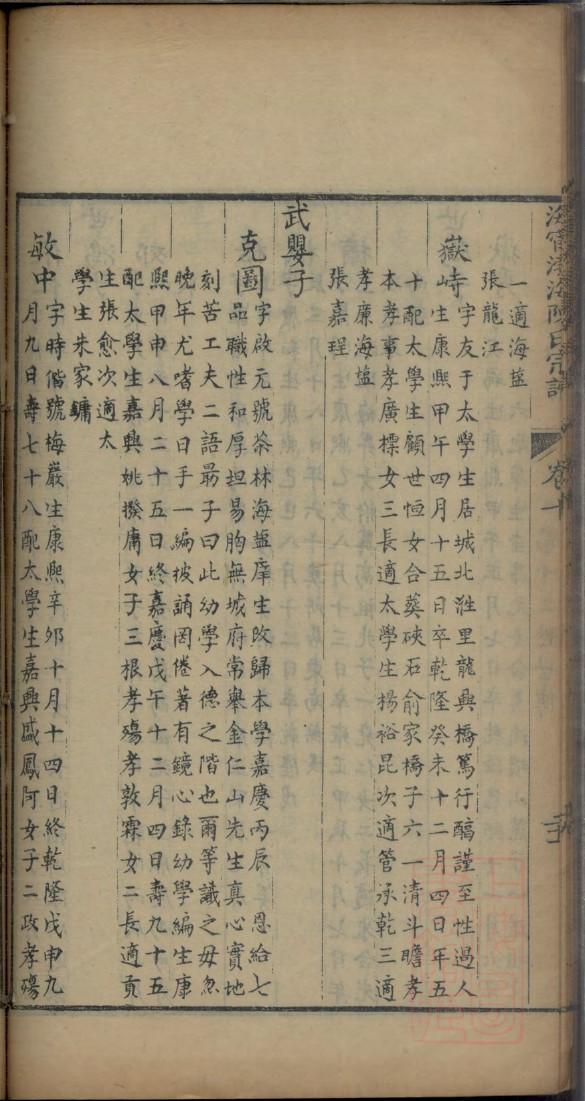 海寧渤海陳氏宗譜
卷十
一適海鹽
張龍江
嶽峙字友于太學生居城北泩里龍興橋篤行醕謹至性過人
生康熙甲午四月十五日卒乾隆癸未十二月四日年五
十配太學生顧世恒女合葬硤石俞家橋子六一清斗瞻孝
本孝事孝廣標女三長適太學生楊裕昆次適管承乾三適
孝廉海鹽
張嘉珵
武嬰子
克圖字啟元號茶林海鹽庠生改歸本學嘉慶丙辰恩給七
品職性和厚坦易胸無城府常舉金仁山先生真心實地
刻苦工夫二語朂子曰此幼學入德之階也爾等識之毋忽
晚年尤嗜學日手一編披誦罔倦著有鏡心錄幼學編生康
熙甲申八月二十五日終嘉慶戊午十二月四日壽九十五
配太學生嘉興姚揆庸女子三根孝殤孝敦霖女二長適貢
生張愈次適太
學生朱家鏞
敏中字時偕號梅巖生康熙辛卯十月十四日終乾隆戊申九
月九日壽七十八配太學生嘉興戚鳳阿女子二政孝殤